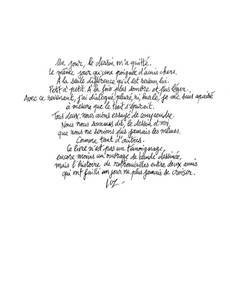 Un jour, le dessin m'a quitté.
Le même jour qu'une poignée d'amis chers.
A la seule différence qu'il est revenu, lui.
Petit à petit. A la fois plus sombre et plus léger.
Avec ce revenant, j'ai dialogué, pleuré, ri, hurlé, je me suis apaisé
à mesure que le trait s'épurait.
Tous deux, nous avons essayé de comprendre.
Nous nous sommes dit, le dessin et moi,
que nous ne serions plus jamais les mêmes.
Comme tant d'autres.
Ce livre n'est pas un témoignage,
encore moins un ouvrage de bande dessinée,
mais l'histoire de retrouvailles entre deux amis
qui ont failli un jour ne plus jamais se croiser.